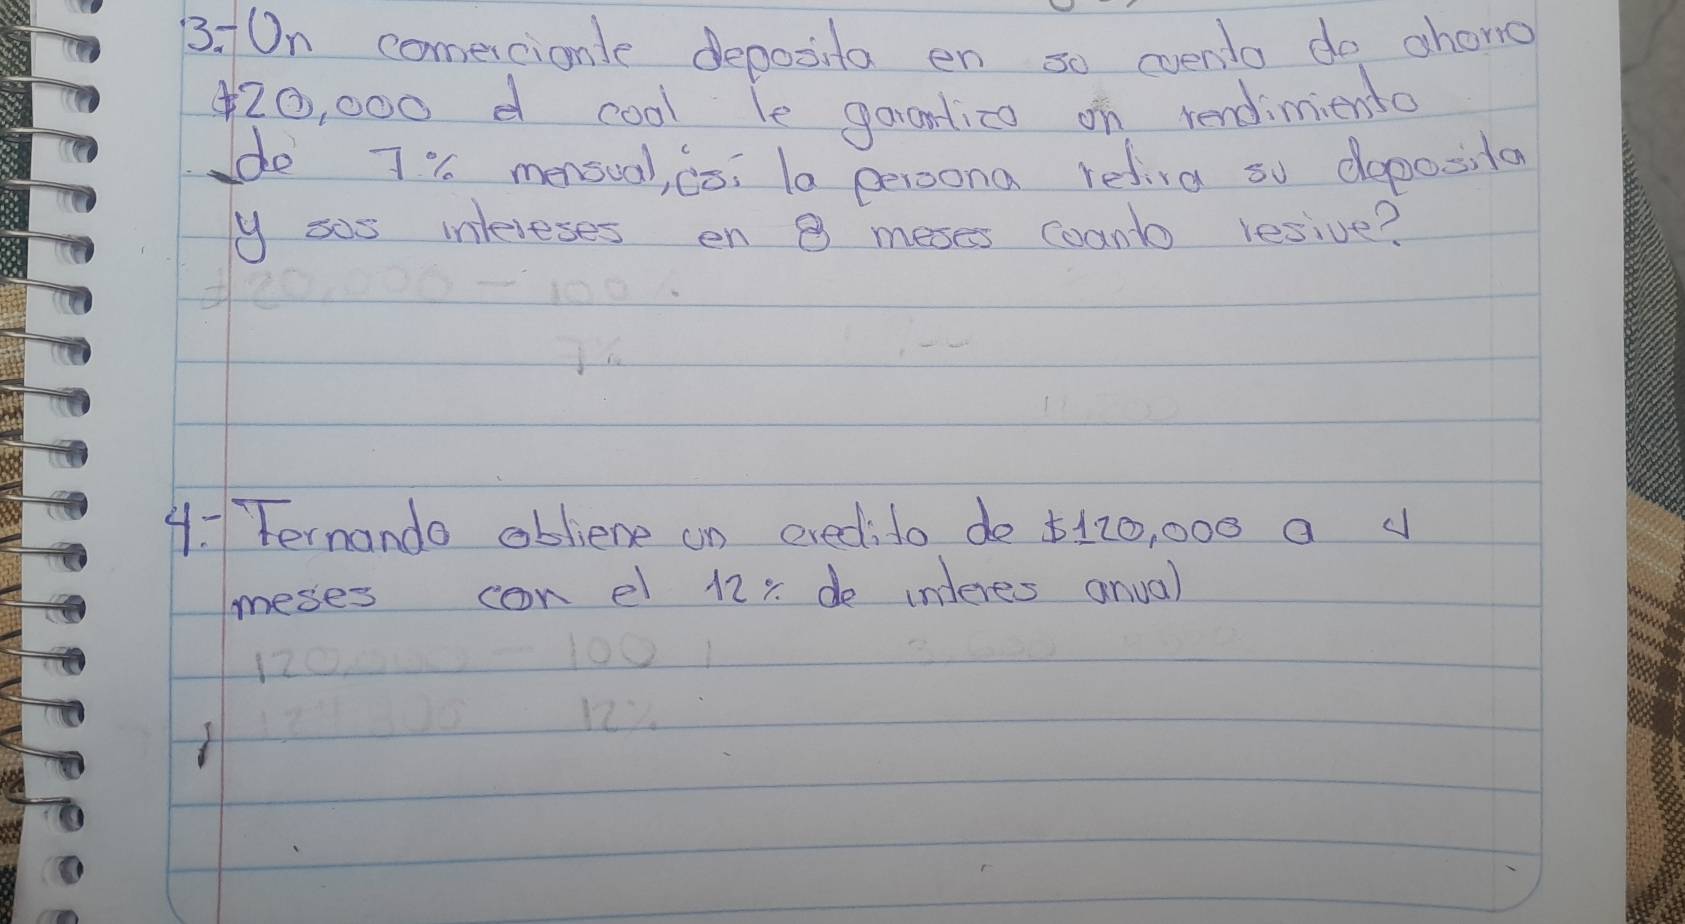 3.- Un comerciante deposita en so cuenta de ahorro
$20,000 el cual le garantiza un rendimiento
de 7% mensual, ¿si la persona retira su deposita
y sus intereses en 8 meses cuanto resive?
$20,000 - 100%
7%
4.- Fernando obtiene un credito de $120,000 a 4
meses con el 12% de interes anual
120,000 - 100
12%